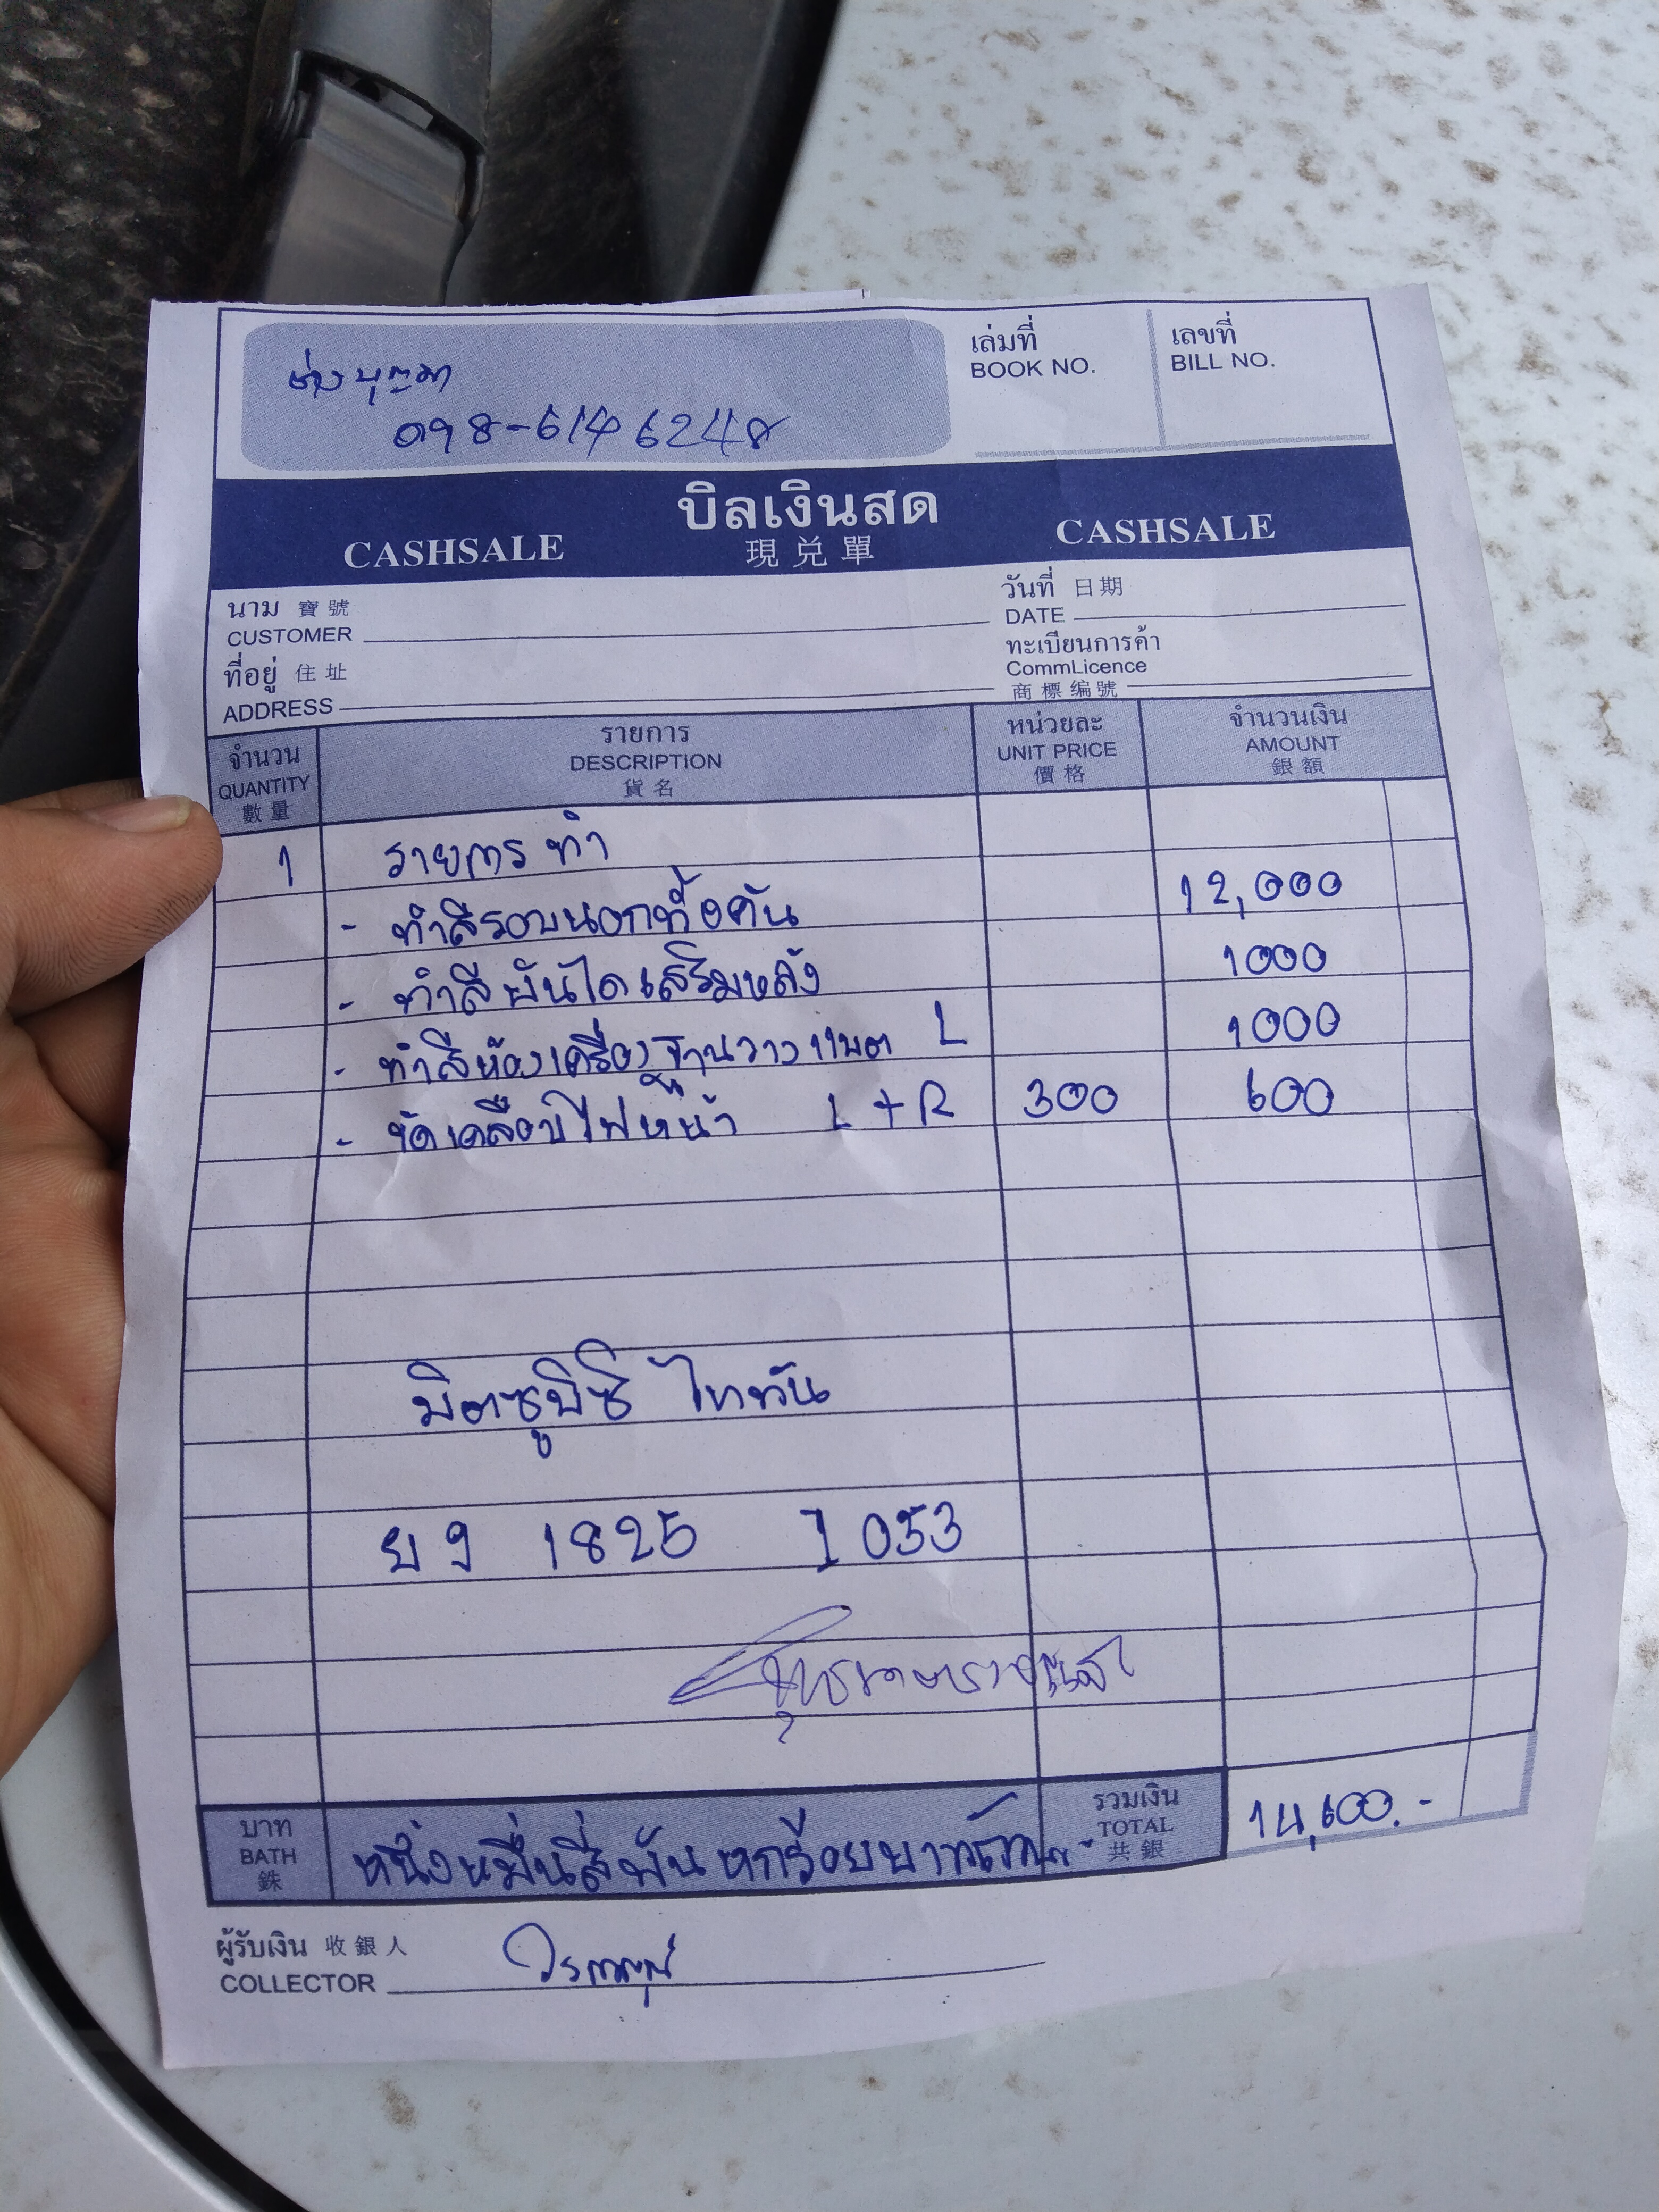 ช่างบุญมา
098-6146248
เล่มที่
BOOK NO.
เลขที่
BILL NO.
บิลเงินสด
CASHSALE 現兑單 CASHSALE
นาม 寶號
CUSTOMER
วันที่ 日期
DATE
ที่อยู่ 住址
ADDRESS
ทะเบียนการค้า
CommLicence
商標编號
จำนวน
QUANTITY
數量
รายการ
DESCRIPTION
貨名
หน่วยละ
UNIT PRICE
價格
จำนวนเงิน
AMOUNT
銀額
1 รายการ ทำ
- ทำสีรอบนอกทั้งคัน 12,000
- ทำสี บันไดเสริมหลัง 1000
- ทำสีห้องเครื่อง ฐานวางแบต L 1000
- ขัดเคลือบไฟหน้า L + R 300 600
มิตซูบิซิ ไททัน
ยง 1825 1053
บาท
BATH
銖
หนึ่งหมื่นสี่พันหกร้อยบาทถ้วน
รวมเงิน
TOTAL
共銀
14,600.-
ผู้รับเงิน 收銀人
COLLECTOR